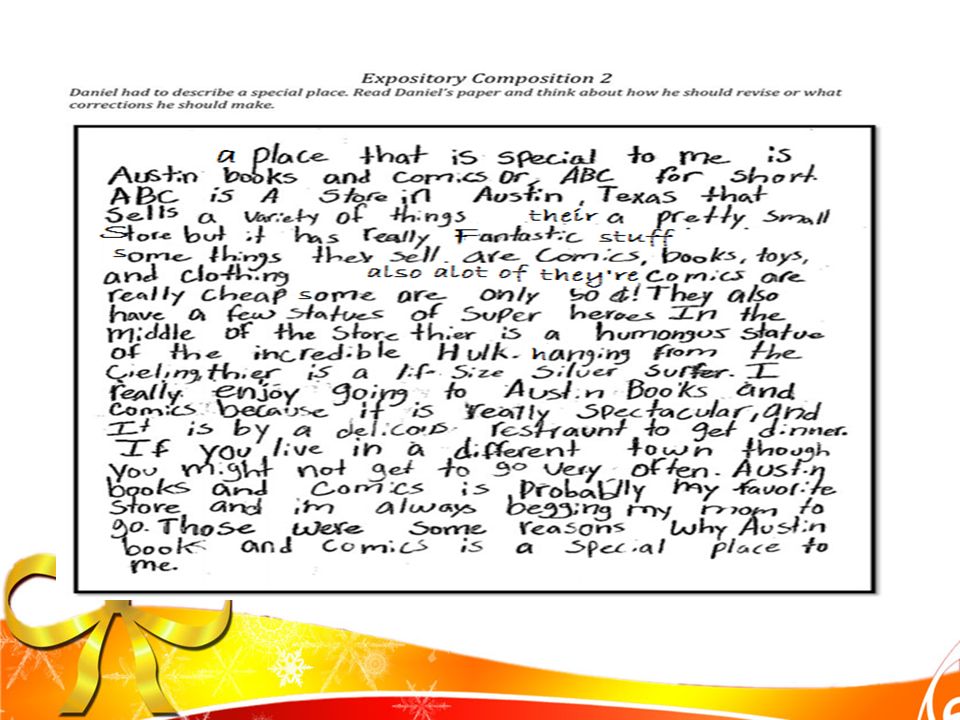 Expository Composition 2
Daniel had to describe a special place. Read Daniel's paper and think about how he should revise or what
corrections he should make.
a place that is special to me is
Austin books and comics or, ABC for short.
ABC is A Store in Austin, Texas that
sells a variety of things their a pretty small
Store but it has really Fantastic stuff
some things they sell are comics, books, toys,
and clothing also alot of they're comics are
really cheap some are only 50 ¢! They also
have a few statues of super heroes In the
middle of the store thier is a humongus statue
of the incredible Hulk. hanging from the
Cieling, thier is a lif size silver surfer. I
really enjoy going to Austin Books and
Comics because it is really spectacular, and
It is by a delicous restraunt to get dinner.
If you live in a different town though
you might not get to go very often. Austin
books and comics is probablly my favorite
store and im always begging my mom to
go. Those were some reasons why Austin
book and comics is a special place to
me.